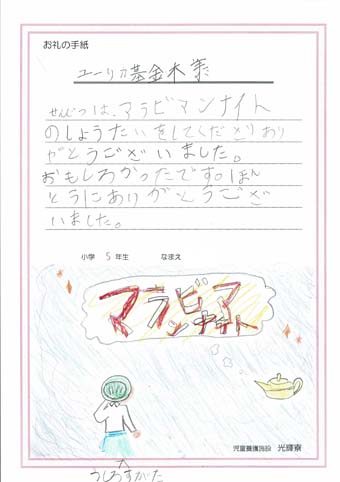 お礼の手紙
ユーリカ基金木 様
せんじつは、マラビマンナイト
のしょうたいをしてくださりあり
がとうございました。
おもしろかったです。ほん
とうにありがとうござ
いました。
小学 5 年生 なまえ
マラビア
ンナイト
児童養護施設 光輝寮
うしろすがた